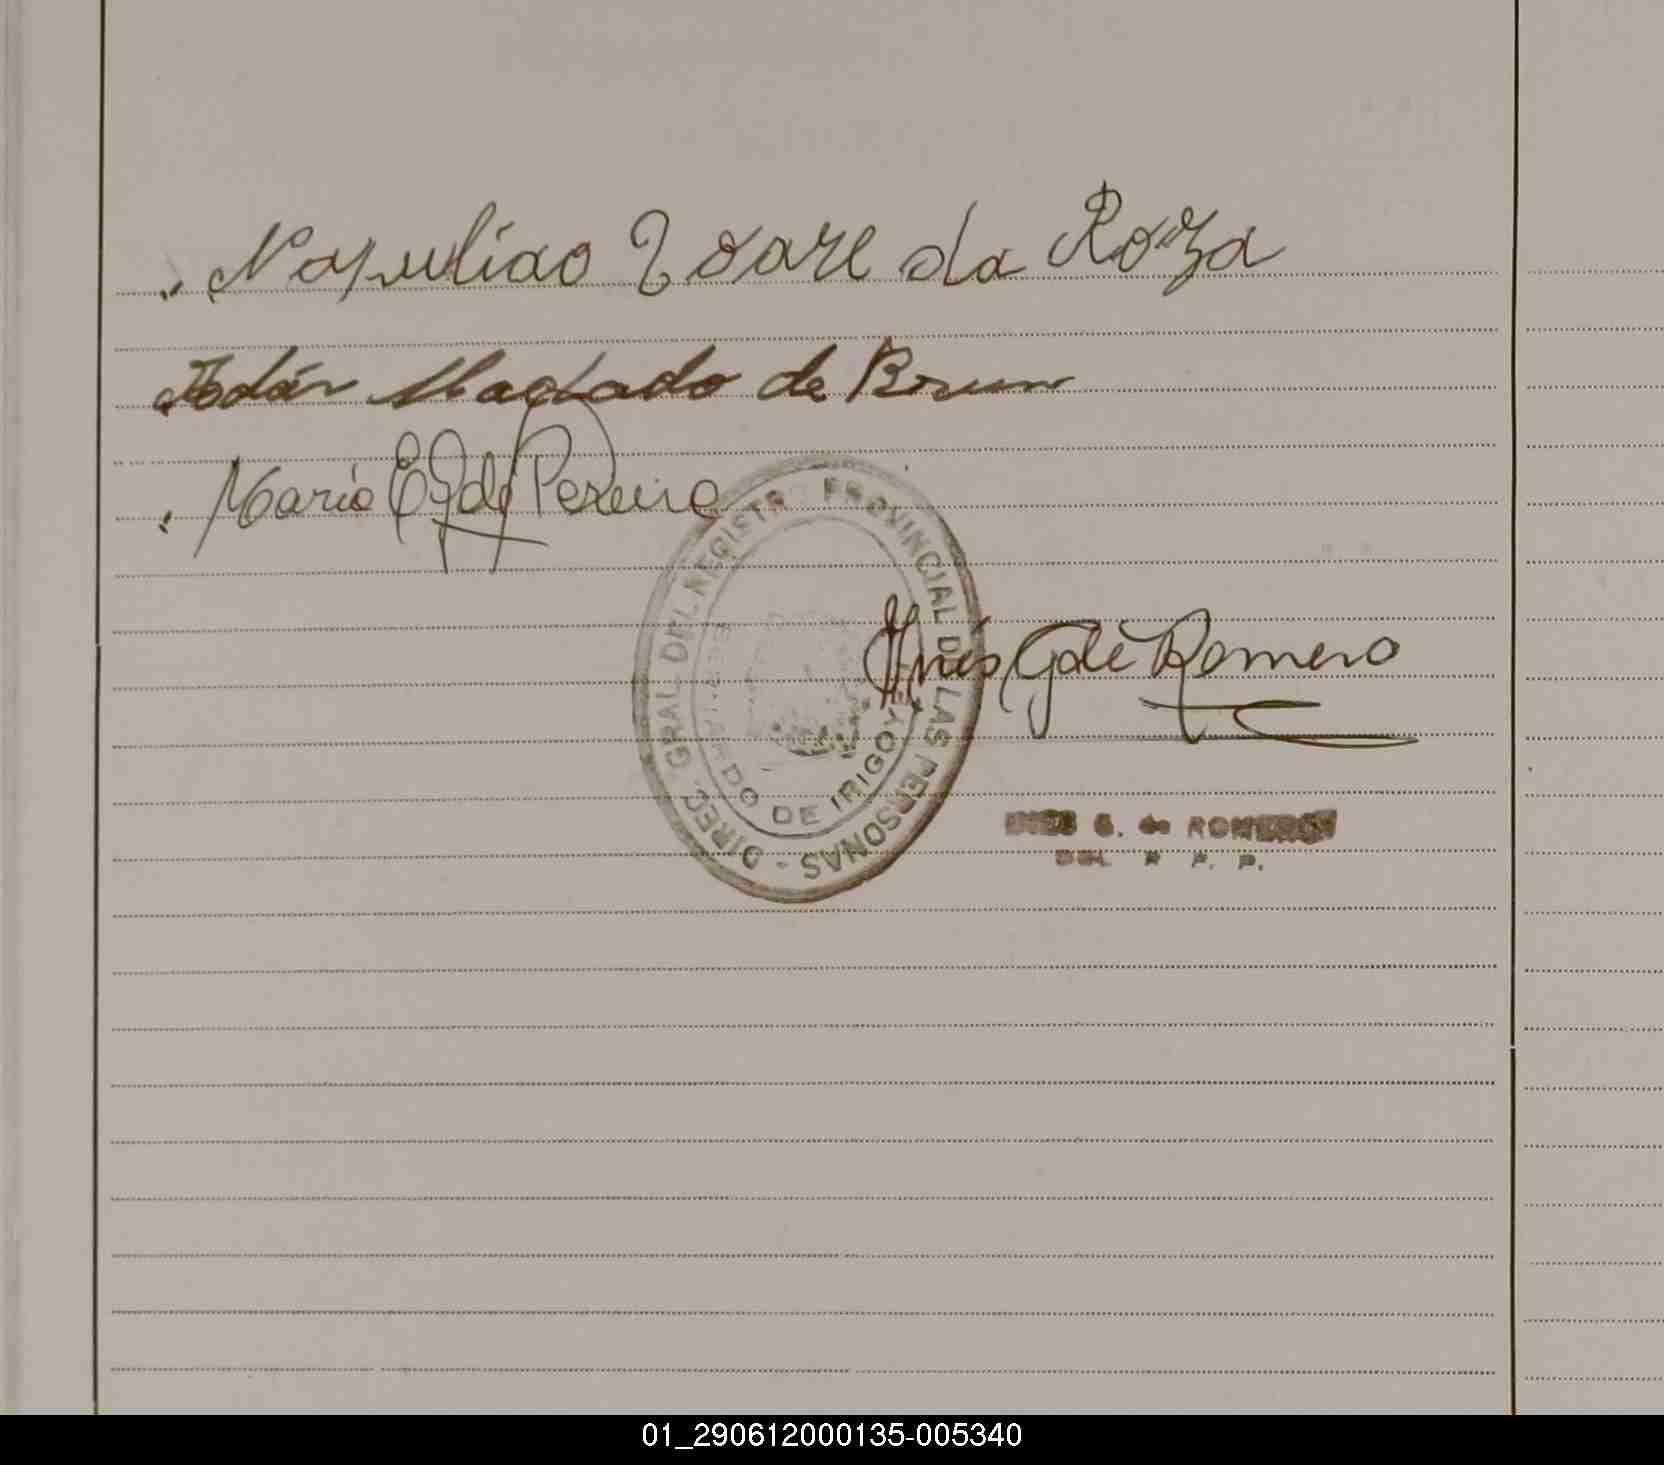 Napulião Loare da Roza
Adán Machado de Brum
Maria E G de Pereira
DIREC. GRAL. DEL REGISTRO PROVINCIAL DE LAS PERSONAS -
BERNARDO DE IRIGOYEN
Ines G de Romero
INES G. de ROMERO
DEL R. P. P.
01_290612000135-005340